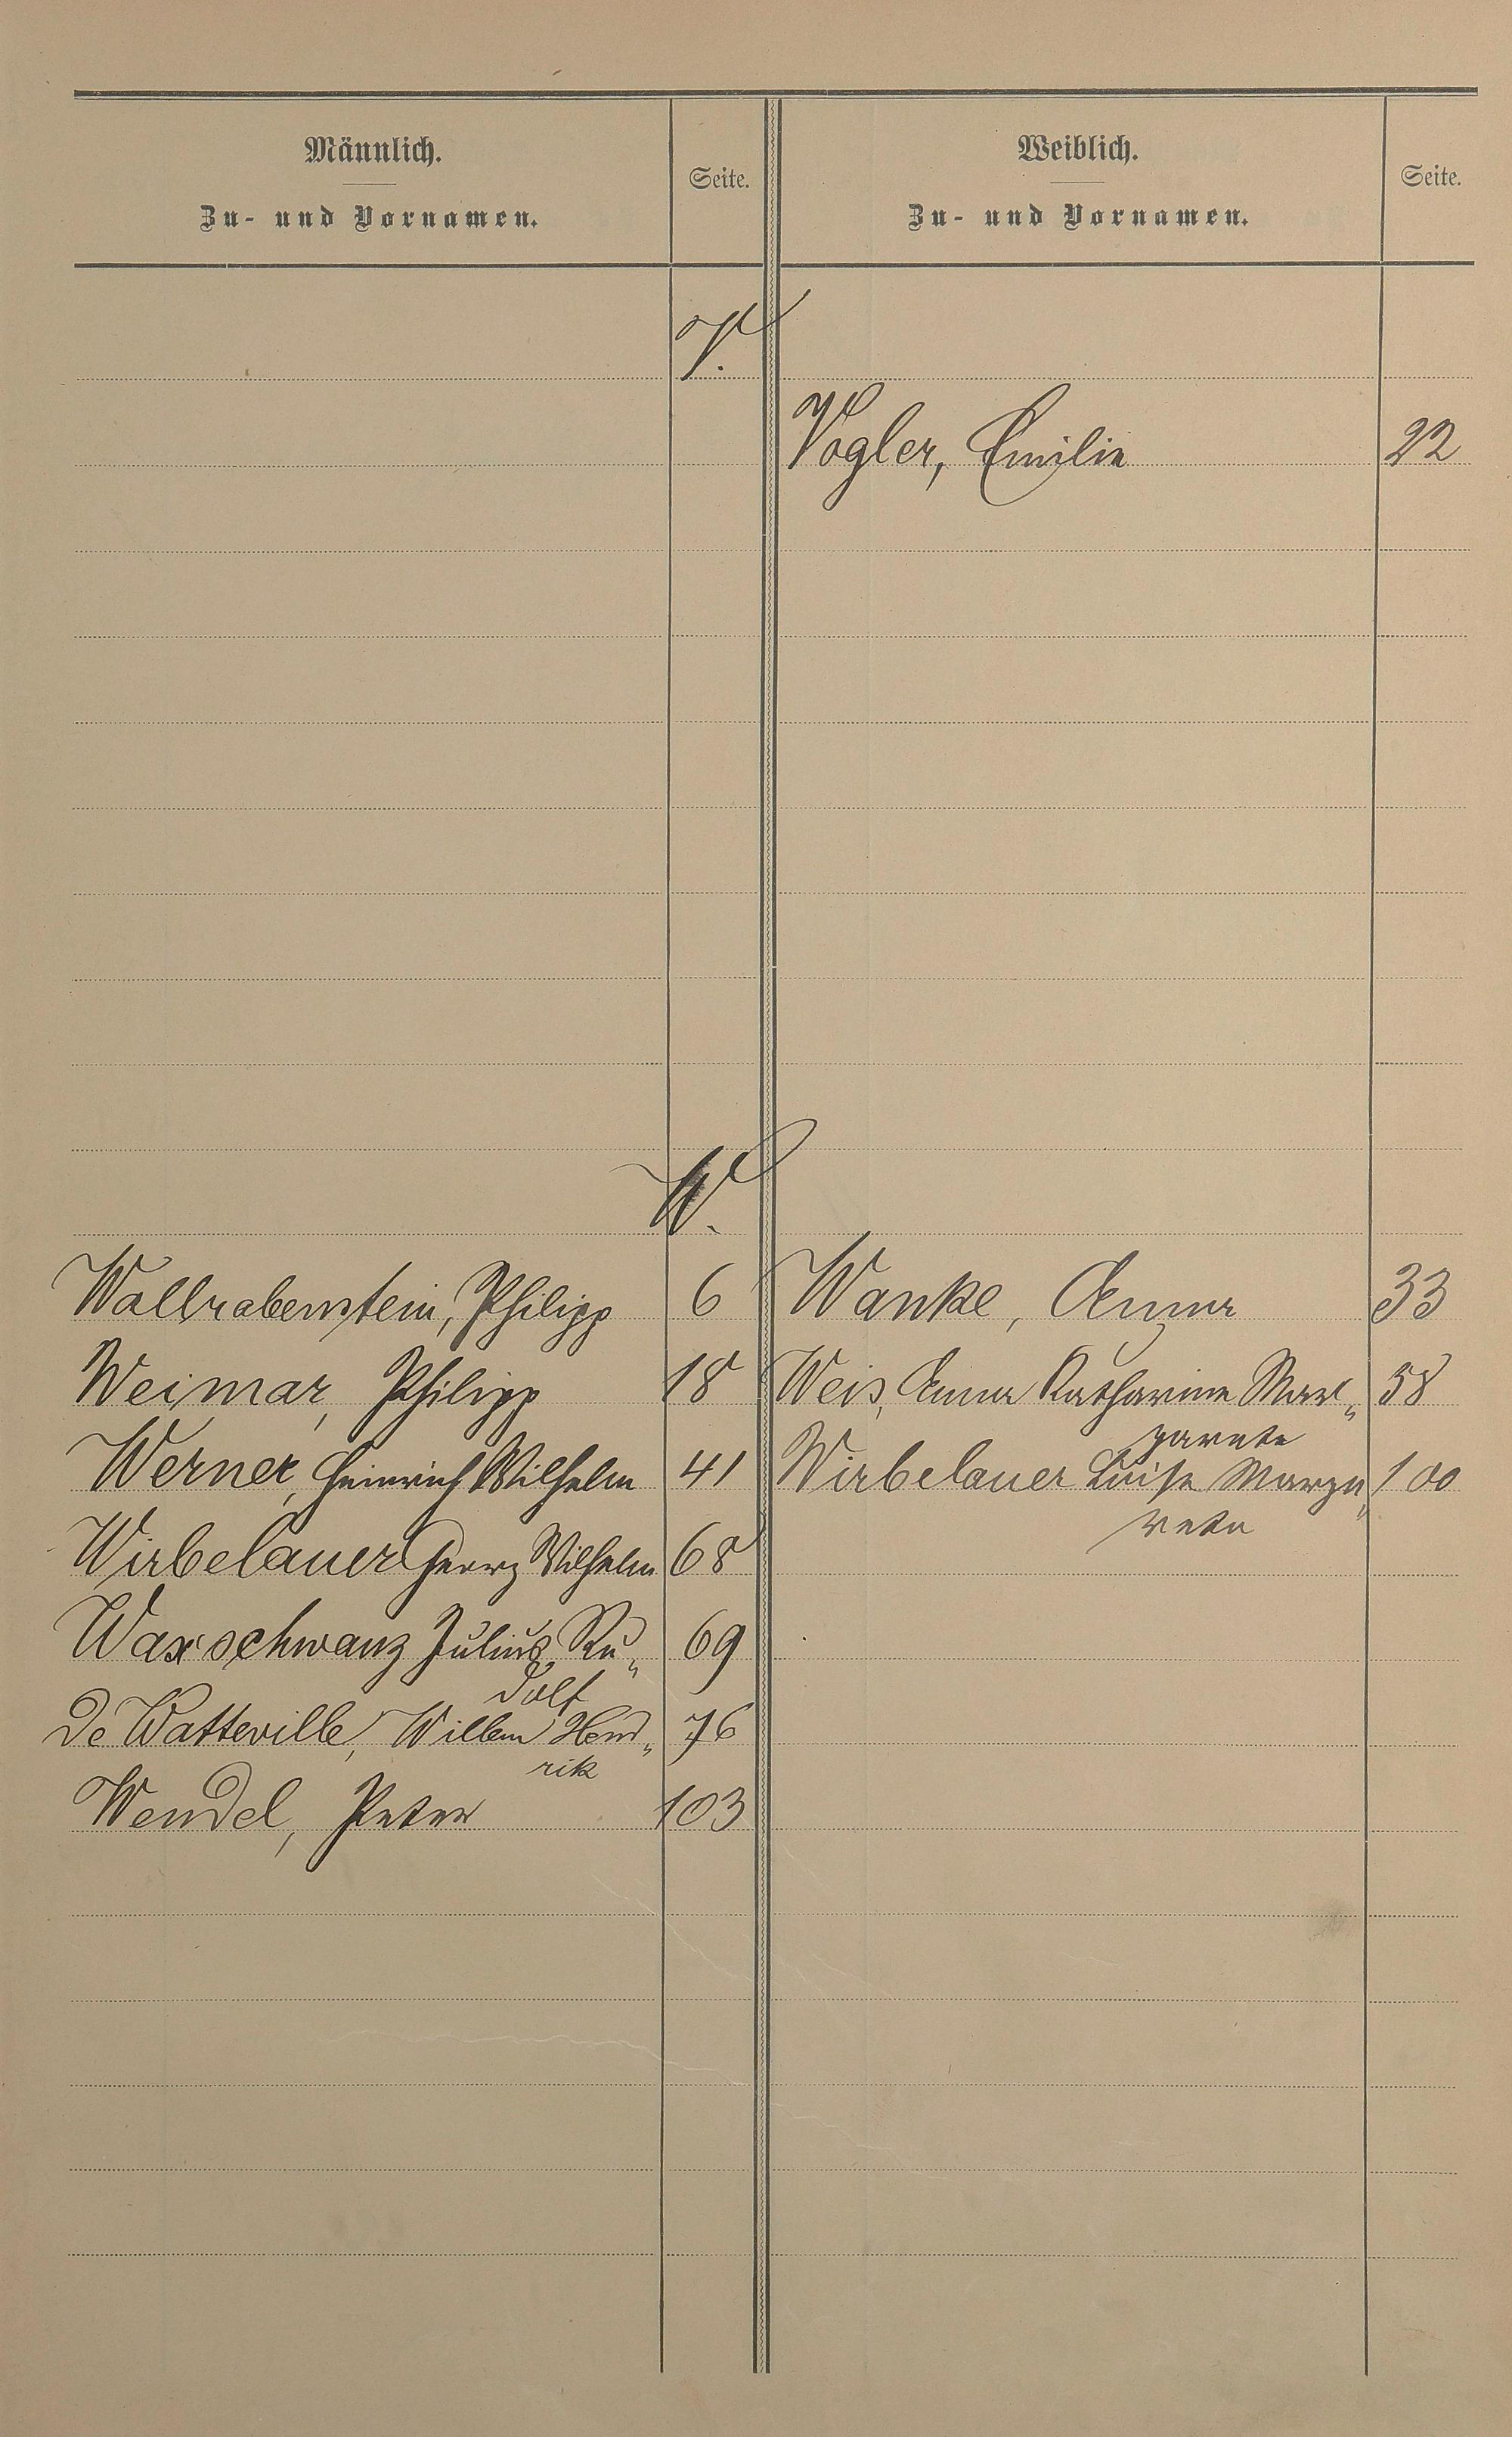 Männlich.
Zu- und Vornamen.
Seite.
Weiblich.
Zu- und Vornamen.
Seite.
V.
Vogler, Emilie 22
W.
Wallrabenstein, Philipp 6
Wanke, Anna 33
Weimar, Philipp 18
Weis, Anna Katharine Mar„ 58
garete
Werner, Heinrich Wilhelm 41
Wirbelauer Luise Marga„ 100
rete
Wirbelauer Georg Wilhelm 68
Waxschwanz Julius Ru„ 69
dolf
De Watteville, Willem Hend„ 76
rik
Wendel, Peter 103